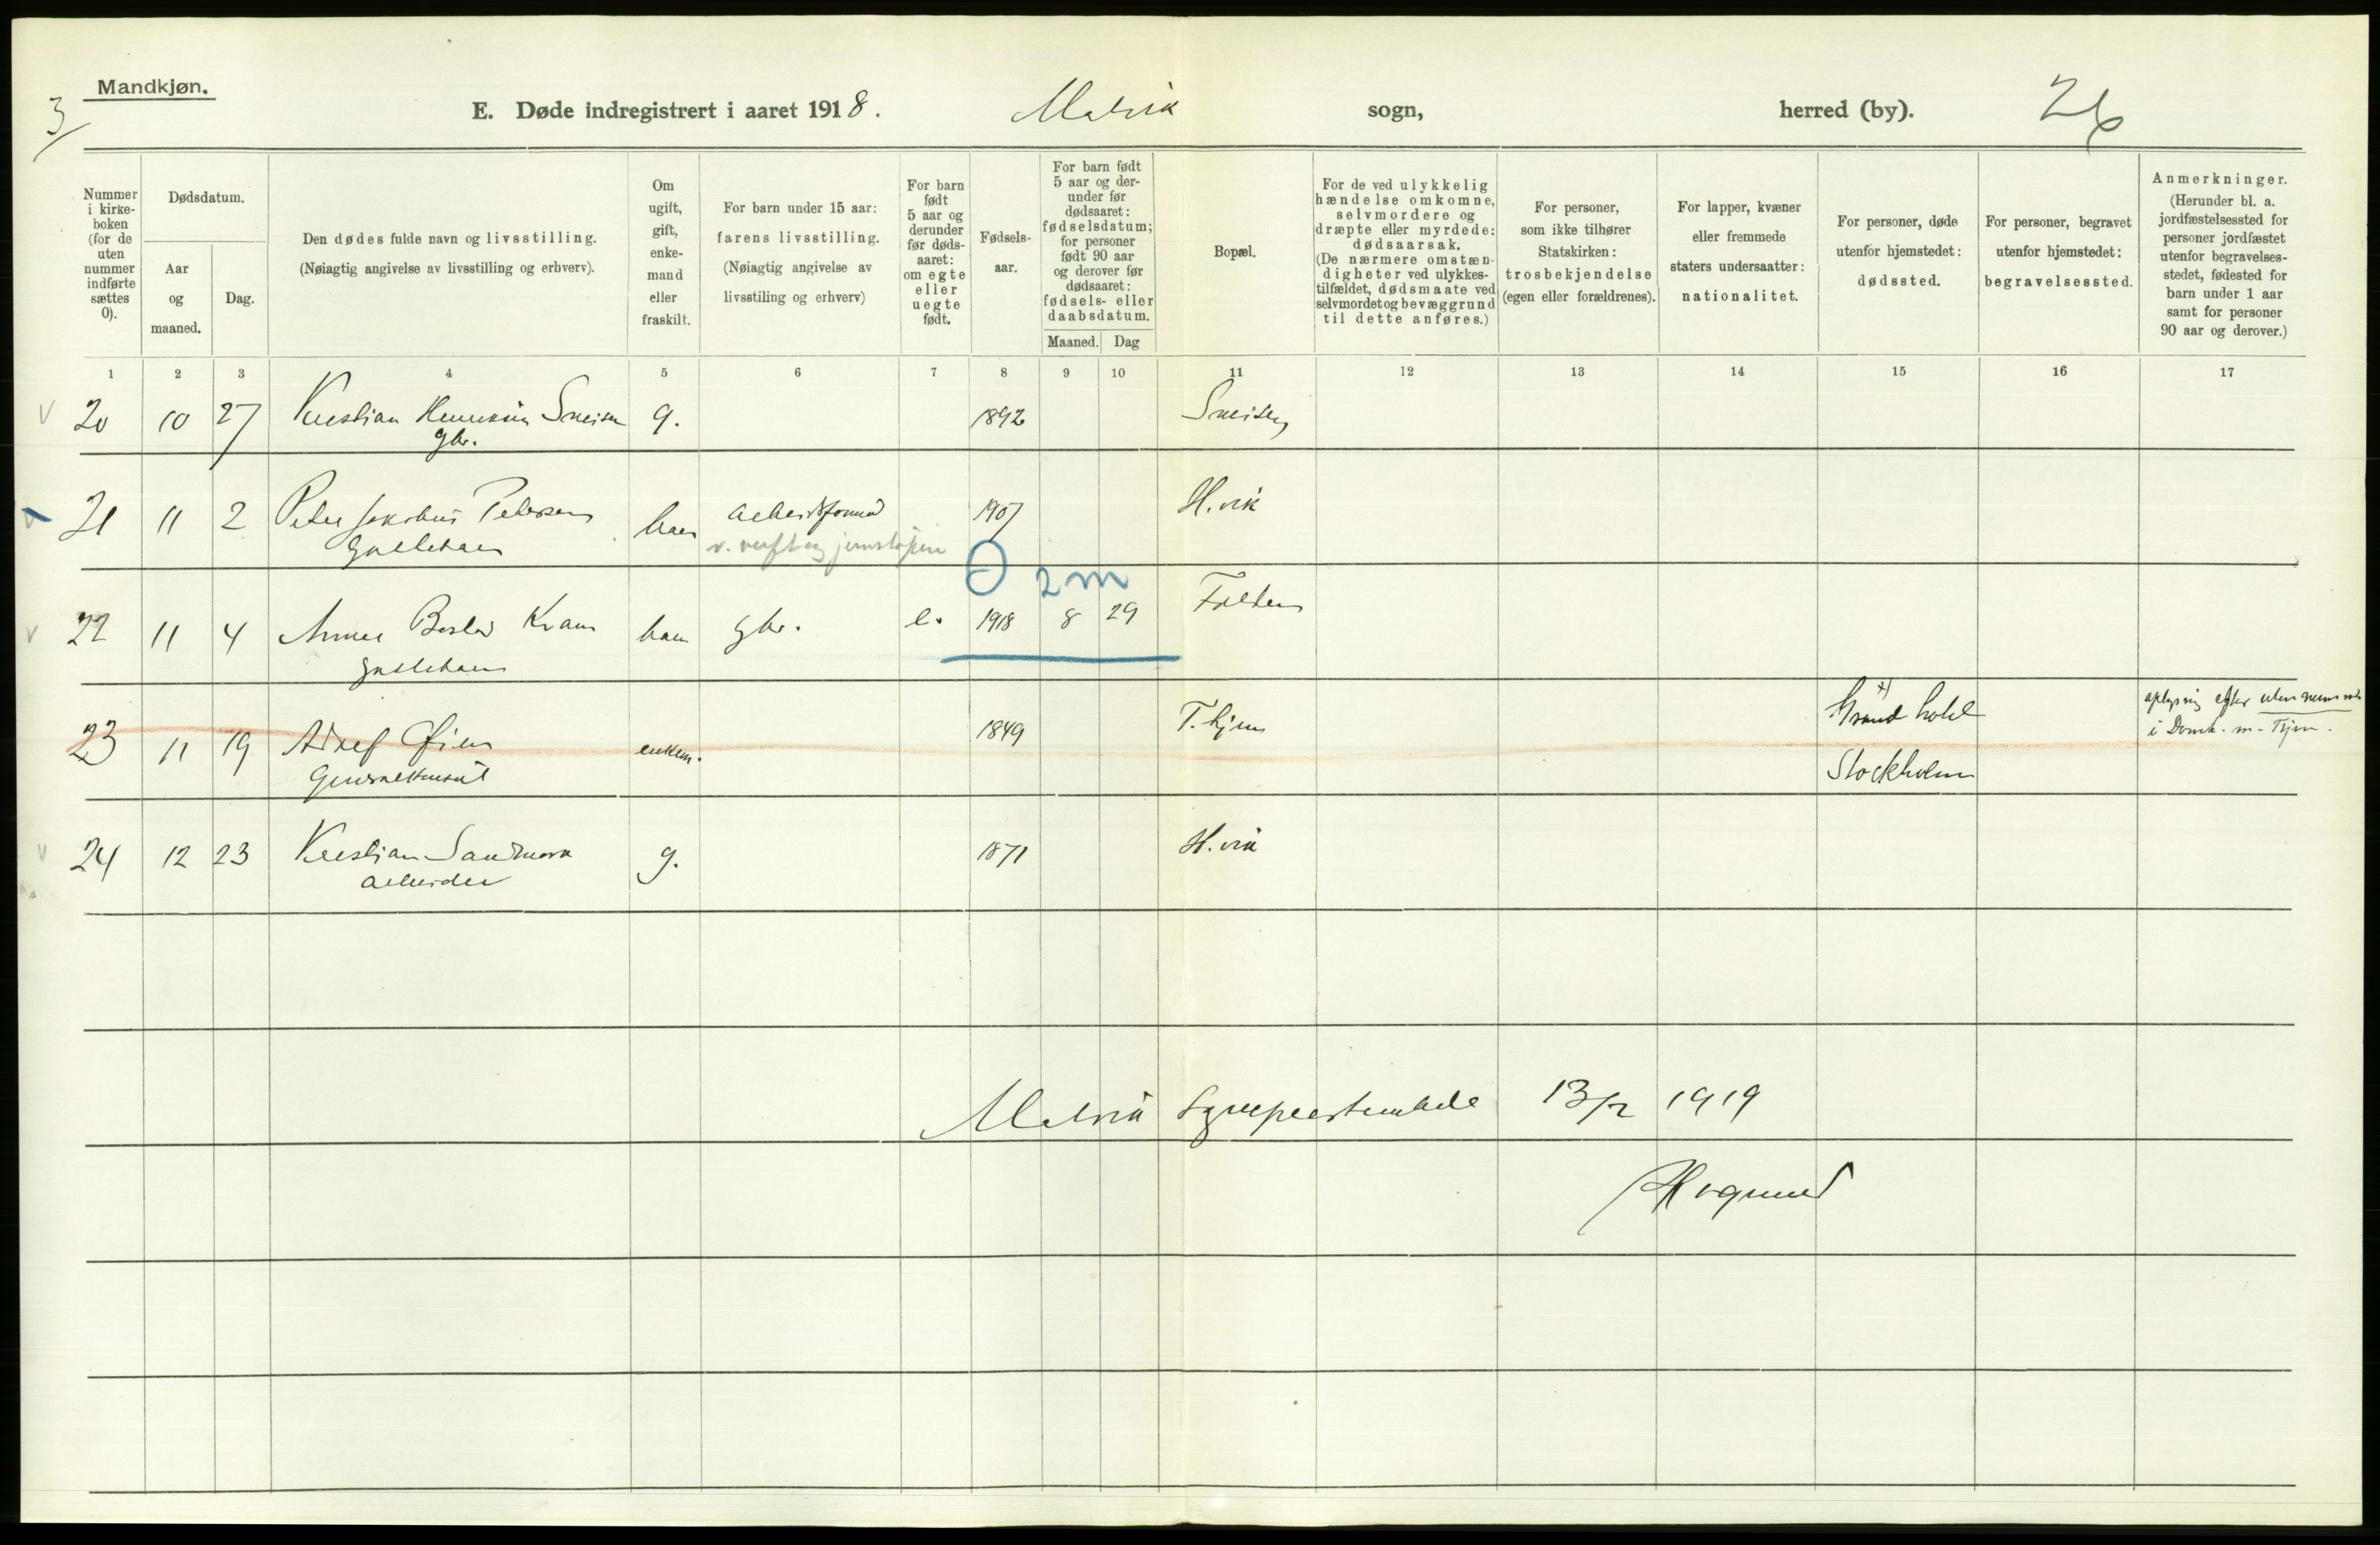 Mandkjøn.
3/
E. Døde indregistrert i aaret 1918. Malvik sogn, herred (by). 26
Nummer i kirke- boken (for de uten nummer indførte sættes 0).
Dødsdatum.
Aar og maaned.
Dag.
Den dødes fulde navn og livsstilling.
(Nøiagtig angivelse av livsstilling og erhverv).
Om ugift, gift, enke- mand eller fraskilt.
For barn under 15 aar: farens livsstilling.
(Nøiagtig angivelse av livsstiling og erhverv)
For barn født 5 aar og derunder før døds- aaret: om egte eller uegte født.
Fødsels- aar.
For barn født 5 aar og der- under før dødsaaret: fødselsdatum; for personer født 90 aar og derover før dødsaaret: fødsels- eller daabsdatum.
Maaned. Dag
Bopæl.
For de ved ulykkelig hændelse omkomne, selvmordere og dræpte eller myrdede: dødsaarsak.
(De nærmere omstæn- digheter ved ulykkes- tilfældet, dødsmaate ved selvmordet og bevæggrund til dette anføres.)
For personer, som ikke tilhører Statskirken: trosbekjendelse (egen eller forældrenes).
For lapper, kvæner eller fremmede staters undersaatter: nationalitet.
For personer, døde utenfor hjemstedet: dødssted.
For personer, begravet utenfor hjemstedet: begravelsessted.
Anmerkninger.
(Herunder bl. a. jordfæstelsessted for personer jordfæstet utenfor begravelses- stedet, fødested for barn under 1 aar samt for personer 90 aar og derover.)
1 2 3 4 5 6 7 8 9 10 11 12 13 14 15 16 17
V 20 10 27 Kristian g. 1892
gbr.
21 11 2 Peter Jakobus Petersen barn arbeidsformd 1907 H.vik
Guttebarn v. verft og
2 m
V 22 11 4 Arne Kvam barn gbr. e. 1918 8 29
Guttebarn
23 11 19 Adolf Øien enkem. 1849 T.hjem Grand hotel
Generalkonsul Stockholm
i Domk. m. T.hjem.
V 24 12 23 Kristian Sandmark g. 1871 H.vik
arbeider
Malvik Sogneprestembede 13/2 1919